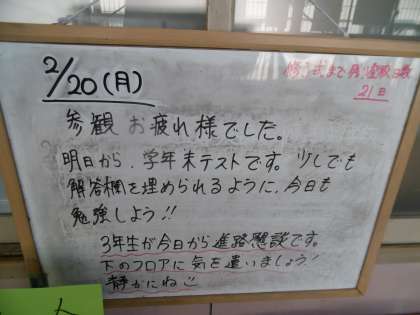 2/20(月)
修了式まで登校日数
21日
参観 お疲れ様でした。
明日から、学年末テストです。少しでも
解答欄を埋められるように、今日も
勉強しよう!!
3年生が今日から進路懇談です。
下のフロアに気を遣いましょう!
静かにね